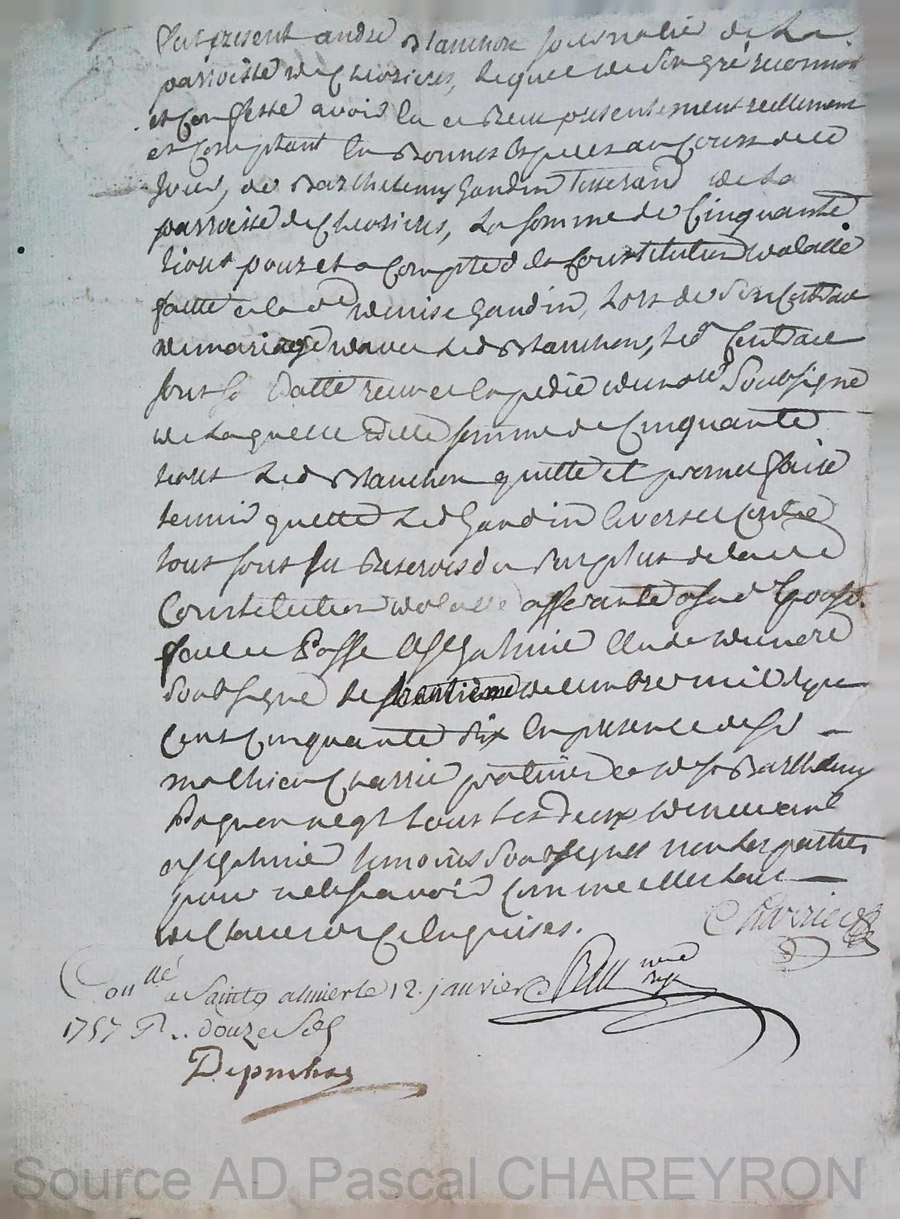 Fut present andré Blanchon journalier de La
parroisse de Chevrieres, lequel de son gré reconnoit
et Confesse avoir eu et Receu presentement reellement
et Comptant En Bonnes Especes au Cours de ce
jour, de Barthelemy Gandin Tisserand de La
parroisse de Chevrieres, La somme de Cinquante
livres pour et a Compte de la Constitution dotalle
faitte a lad. Denise Gandin, Lors de Son Contract
de mariage avec Led Blanchon, Led Contract
sous Sa Datte receu et Expedié du no.re Soubsigné
de Laquelle ditte somme de Cinquante
livres Led Blanchon quitte et promet faire
tenir quitte Led Gandin Envers et Contre
tous sous Les Reserves du Surplus de lad
Constitution dotalle afferante a sad Epouse.
fait et Passé a St Galmier Etude du no.re
Soubsigné le trentieme decembre mil sept
Cent Cinquante Six En presence de Sr
mathieu Charrier praticien et de Sr Barthelemy
negt tous Les Deux demeurant
a St Galmier temoins Soubsignés non Les parties
pour ne le Sçavoir Comme elles L'ont
declaré de Ce Enquises.
Charrier
Conllé a Saint Galmier le 12. janvier
1757 R.. douze Sols